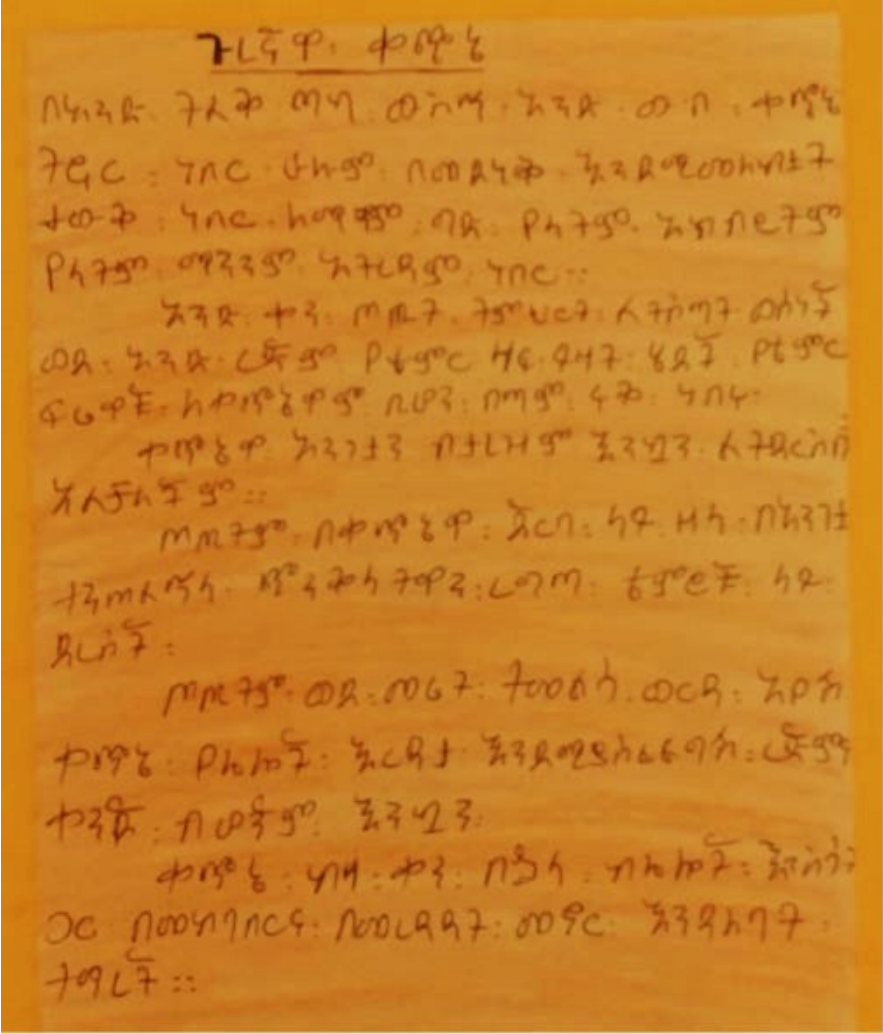 ጉረኛዋ ቀጭኔ
በአንድ ትልቅ ጫካ ውስጥ አንድ ውብ ቀጭኔ
ትኖር ነበር ሁሉም በመደነቅ እንደሚመለከቷት
ታውቅ ነበር ለማንም ግድ የላትም አክብሮትም
የላትም ማንንም አትረዳም ነበር።
አንድ ቀን ጦጢት ትምህርት ልትሰጣት ወሰነች
ወደ አንድ ረጅም የቴምር ዛፍ ይዛት ሄደች የቴምር
ፍሬዎቹ ለቀጭኔዋም በሆን በጣም ሩቅ ነበሩ
ቀጭኔዋ አንገቷን ብታረዝምም እንኳን ልትደርስበት
አልቻለችም።
ጦጢትም በቀጭኔዋ ጀርባ ላይ ዘላ በአንገቷ
ተንጠልጥላ ጭንቅላትዋን ረግጣ ቴምሮቹ ላይ
ደረሰች
ጦጢትም ወደ መሬት ተመልሳ ወርዳ አየሽ
ቀጭኔ የሌሎች እርዳታ እንደሚያስፈልግሽ ረጅምና
ቆንጆ ብሆንም እንኳን
ቀጭኔ ከዛ ቀን በኋላ ከሌሎች እንስሳት
ጋር በመተባበርና በመረዳዳት መኖር እንዳለባት
ተማረች።